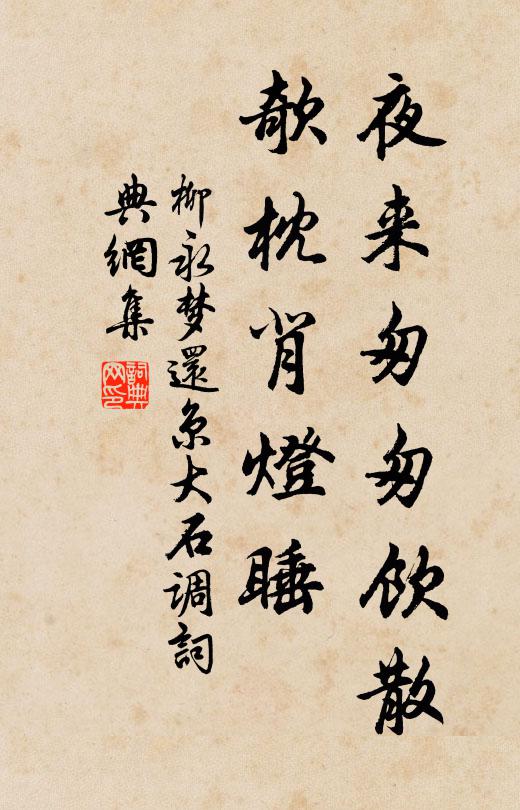 夜来匆匆飲散
欹枕背燈睡
柳永梦還京大石调詞
典網集
詞典网印